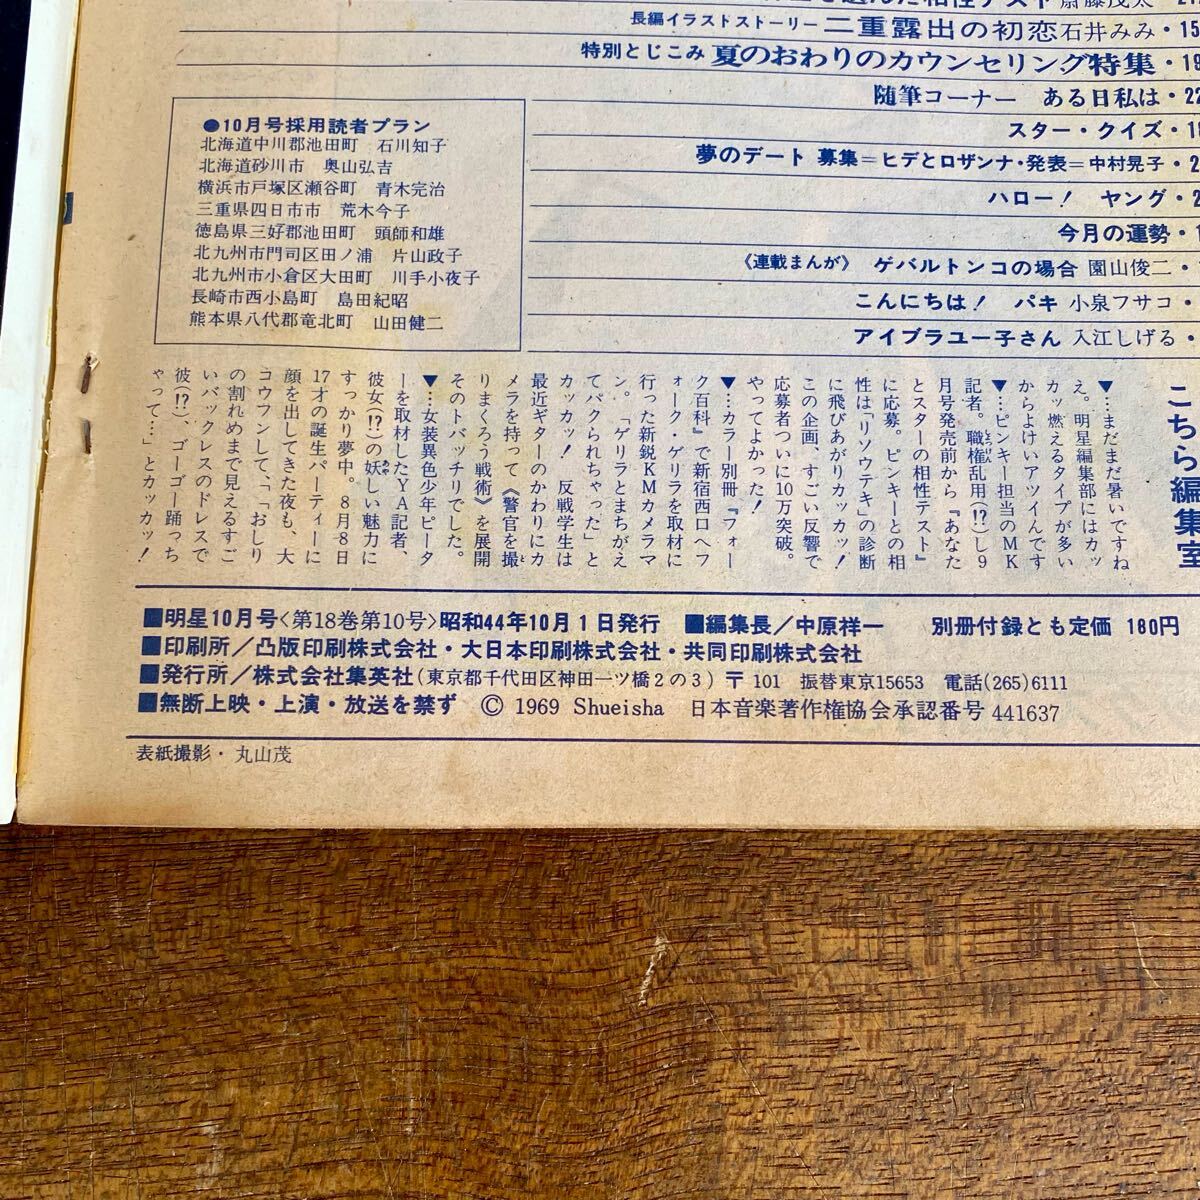 選んだ相性テスト 斎藤茂太・21
長編イラストストーリー 二重露出の初恋 石井みみ・15
特別とじこみ 夏のおわりのカウンセリング特集・19
随筆コーナー ある日私は・22
スター・クイズ・1
夢のデート 募集=ヒデとロザンナ・発表=中村晃子・2
ハロー! ヤング・2
今月の運勢・1
《連載まんが》 ゲバルトンコの場合 園山俊二・
こんにちは! パキ 小泉フサコ・
アイブラユー子さん 入江しげる・
●10月号採用読者プラン
北海道中川郡池田町 石川知子
北海道砂川市 奥山弘吉
横浜市戸塚区瀬谷町 青木完治
三重県四日市市 荒木今子
徳島県三好郡池田町 頭師和雄
北九州市門司区田ノ浦 片山政子
北九州市小倉区大田町 川手小夜子
長崎市西小島町 島田紀昭
熊本県八代郡竜北町 山田健二
こちら編集室
▼…まだまだ暑いですね
え。明星編集部にはカッ
カッ燃えるタイプが多い
からよけいアツイんです
▼…ピンキー担当のMK
記者。職権乱用(!?)し9
月号発売前から『あなた
とスターの相性テスト』
に応募。ピンキーとの相
性は「リソウテキ」の診断
に飛びあがりカッカッ!
この企画、すごい反響で
応募者ついに10万突破。
やってよかった!
▼…カラー別冊『フォー
ク百科』で新宿西口へフ
ォーク・ゲリラを取材に
行った新鋭KMカメラマ
ン。「ゲリラとまちがえ
てパクられちゃった」と
カッカッ! 反戦学生は
最近ギターのかわりにカ
メラを持って《警官を撮
りまくろう戦術》を展開
そのトバッチリでした。
▼…女装異色少年ピータ
ーを取材したYA記者、
彼女(!?)の妖しい魅力に
すっかり夢中。8月8日
17才の誕生パーティーに
顔を出してきた夜も、大
コウフンして、「おしり
の割れめまで見えるすご
いバックレスのドレスで
彼(!?)、ゴーゴー踊っち
ゃって…」とカッカッ!
■明星10月号〈第18巻第10号〉昭和44年10月1日発行 ■編集長/中原祥一 別冊付録とも定価 180円
■印刷所/凸版印刷株式会社・大日本印刷株式会社・共同印刷株式会社
■発行所/株式会社集英社(東京都千代田区神田一ツ橋2の3) 〒101 振替東京15653 電話(265)6111
■無断上映・上演・放送を禁ず © 1969 Shueisha 日本音楽著作権協会承認番号 441637
表紙撮影・丸山茂